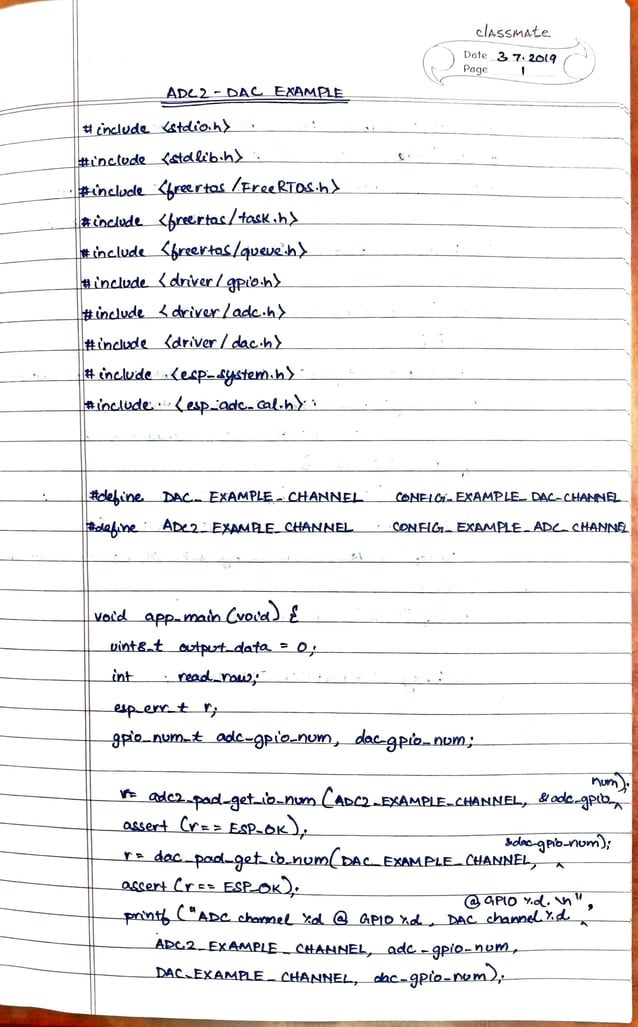 classmate
Date 3.7.2019
Page 1
ADC2 - DAC EXAMPLE
#include <stdio.h>
#include <stdlib.h>
#include <freertos/FreeRTOS.h>
#include <freertos/task.h>
#include <freertos/queue.h>
#include <driver/gpio.h>
#include <driver/adc.h>
#include <driver/dac.h>
#include <esp_system.h>
#include <esp_adc_cal.h>
#define DAC_EXAMPLE_CHANNEL CONFIG_EXAMPLE_DAC_CHANNEL
#define ADC2_EXAMPLE_CHANNEL CONFIG_EXAMPLE_ADC_CHANNEL
void app_main(void) {
uint8_t output_data = 0;
int read_raw;
esp_err_t r;
gpio_num_t adc_gpio_num, dac_gpio_num;
r= adc2_pad_get_io_num (ADC2_EXAMPLE_CHANNEL, &adc_gpio_num);
assert (r== ESP_OK);
r= dac_pad_get_io_num(DAC_EXAMPLE_CHANNEL, &dac_gpio_num);
assert (r== ESP_OK);
printf ("ADC channel %d @ GPIO %d, DAC channel %d @ GPIO %d. \n",
ADC2_EXAMPLE_CHANNEL, adc_gpio_num,
DAC_EXAMPLE_CHANNEL, dac_gpio_num);